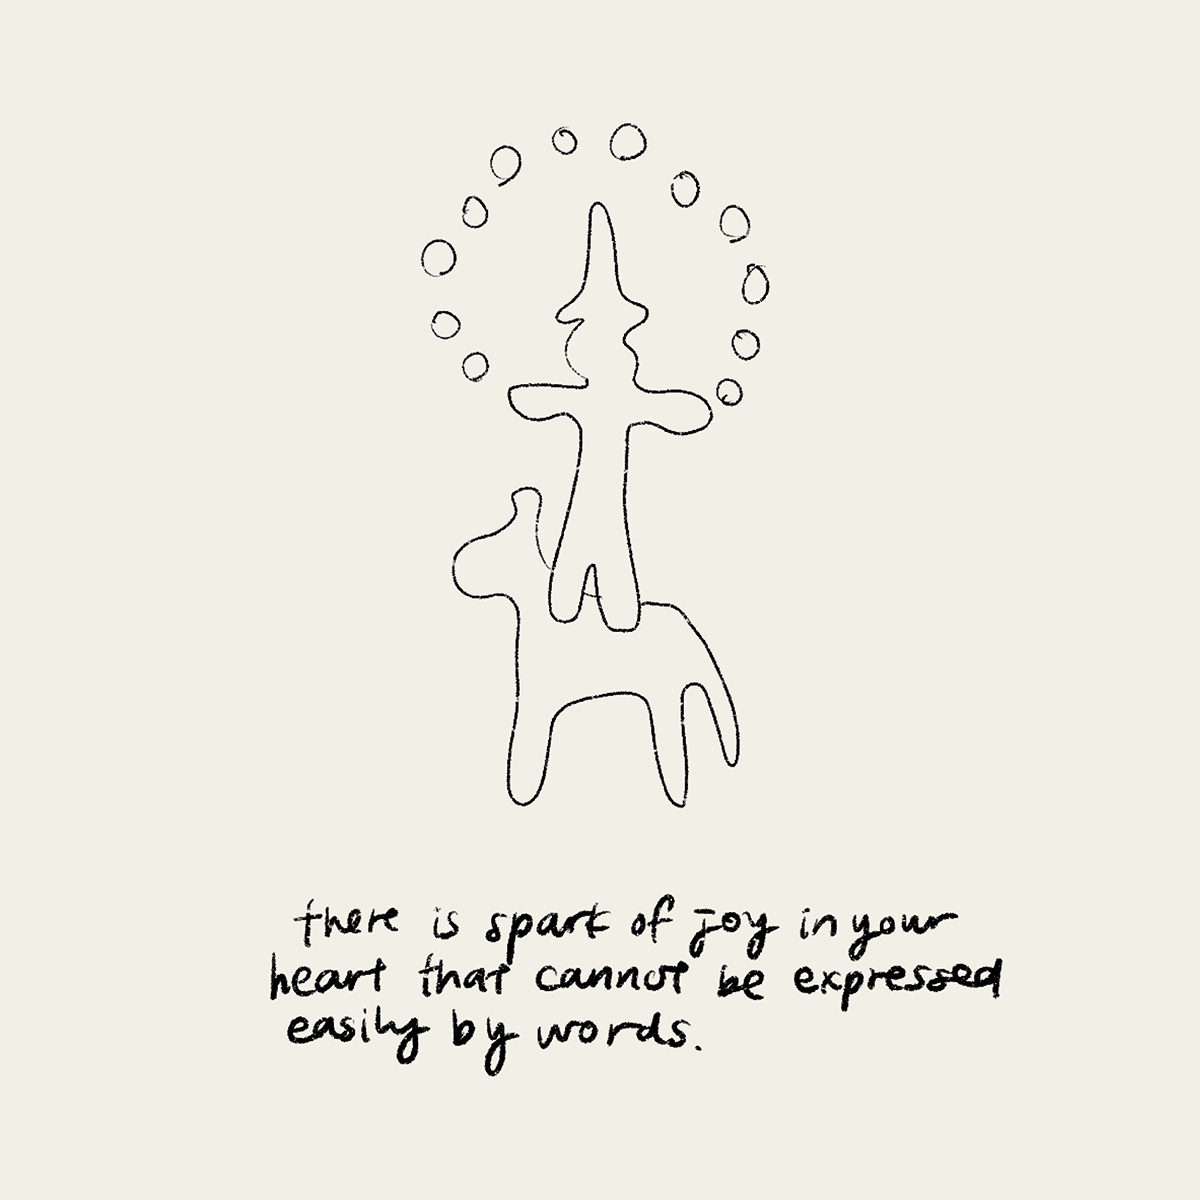 there is spark of joy in your
heart that cannot be expressed
easily by words.